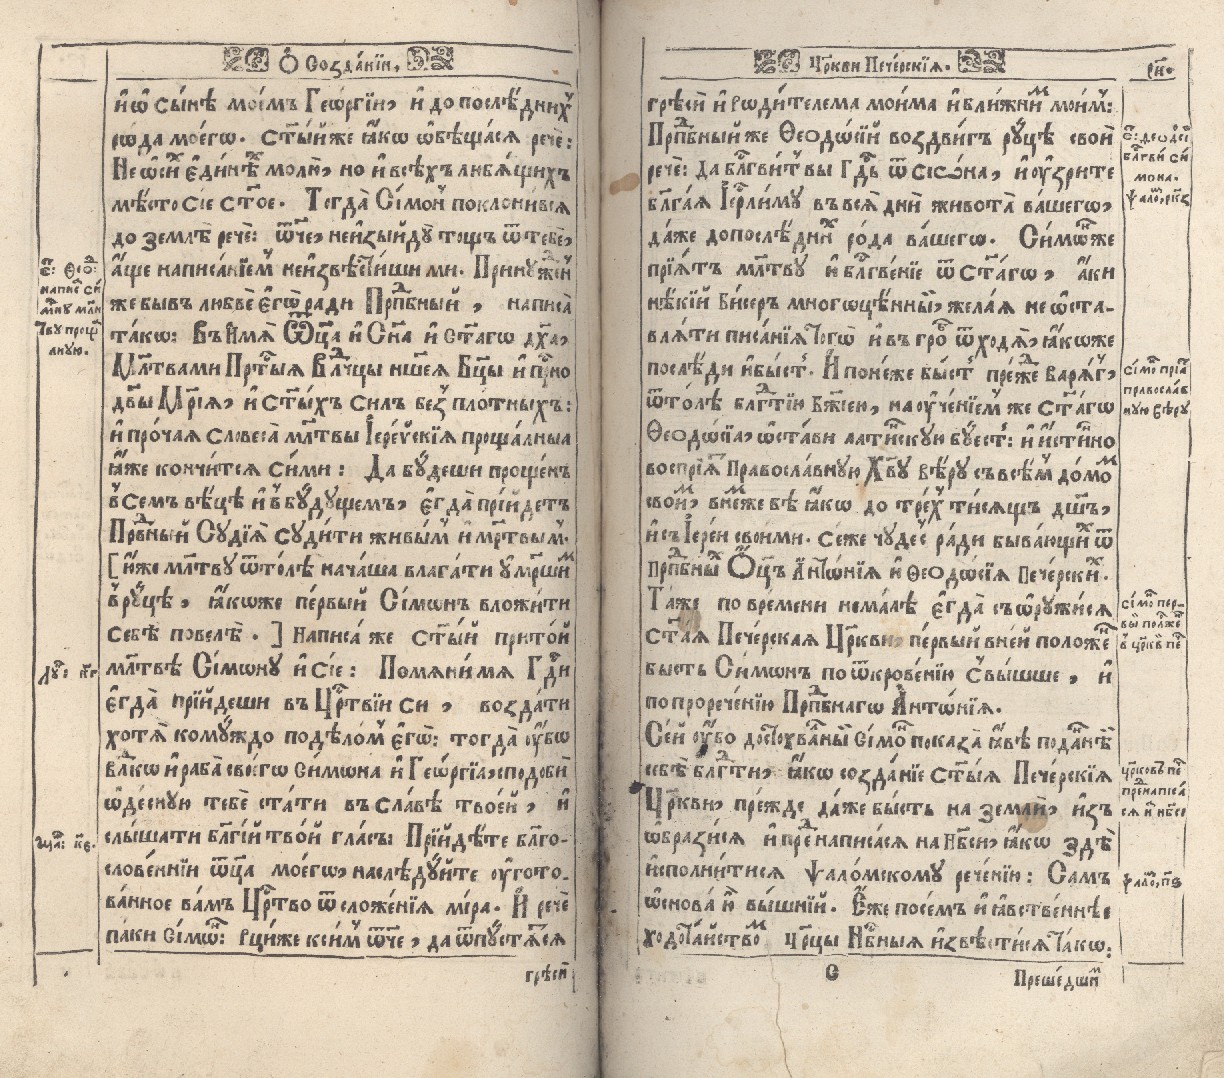 Ѽ Созда́нїи,
и҆ ѡ҆ сы́нѣ мое́мъ Гео́ргїи, и҆ до послѣ́днихъ
ро́да моегѡ̀. ст҃ы́й же ꙗ҆́кѡ ѡ҆бѣща́сѧ речѐ:
Не ѡ҆ си́хъ є҆ди́нѣхъ молю̀, но и҆ всѣ́хъ лю́бѧщихъ
мѣ́сто сїѐ ст҃о́е. Тогда̀ Сі́мѡн поклони́всѧ
до землѣ̀ речѐ: ѿч҃е, не и҆зы́йдꙋ то́щъ ѿ тебѐ,
а҆́ще написа́нїемъ не и҆звѣсти́ши ми. Принꙋжде́н
же бы́въ любвѐ є҆гѡ̀ ра́ди Прпⷣбный, написа̀
та́кѡ: Въ И҆́мѧ Ѿц҃а̀ и҆ Сн҃а и҆ ст҃а́гѡ дх҃а,
Мл҃твами Прⷭ҇ты́ѧ Влⷣчцы на́шеѧ Бц҃ы и҆ прⷭ҇но
дв҃ы Мр҃і́ѧ, и҆ ст҃ы́хъ си́лъ безпло́тныхъ:
и҆ про́чаѧ словеса̀ мл҃твы І҆ере́йскїѧ проща́лныѧ
ꙗ҆́же конча́тсѧ си́ми: Да бꙋ́деши проще́нъ
в се́мъ вѣ́цѣ и҆ в бꙋ́дꙋщемъ, є҆гда̀ прїи́детъ
Првⷣный Сꙋдїѧ̀ сꙋди́ти живы́мъ и҆ ме́ртвымъ.
[си́ю же мл҃твꙋ ѿто́лѣ нача́ша влага́ти ᲂу҆ме́ршимъ
в рꙋ́цѣ, ꙗ҆́коже пе́рвый Сі́мѡнъ вложи́ти
себѣ̀ повелѣ̀.] Написа́ же ст҃ы́й при то́й
мл҃твѣ Сі́мѡнꙋ и҆ сїѐ: Помѧни́ мѧ Гдⷭ҇и
є҆гда̀ прїи́деши въ Црⷭ҇твїи си, возда́ти
хотѧ̀ комꙋ́ждо по дѣлѡ́мъ є҆гѡ̀: тогда̀ ᲂу҆́бѡ
влⷣко и҆ раба̀ своегѡ̀ Си́мѡна и҆ Гео́ргїа, сподо́би
ѡ҆деснꙋ́ю тебѐ ста́ти въ сла́вѣ твое́й, и҆
слы́шати бл҃гі́й тво́й гла́съ: Прїидѣ́те бл҃го-
слове́ннїи ѿц҃а̀ моегѡ̀, наслѣ́дꙋйте ᲂу҆гото-
ва́нное ва́мъ Црⷭ҇тво ѿ сложе́нїѧ мі́ра. И҆ речѐ
па́ки Сі́мѡн: Рцы́ же к си́мъ ѿч҃е, да ѿпꙋ́стѧтсѧ
грѣси̑
Ст҃: Ѳеоⷣ
написⷶ си́
мѡнꙋ мл҃и
твꙋ проща́
лнꙋю.
Лꙋⷦ: к҃г
Маⷴ: к҃е.
Цр҃кви Пече́рскїѧ.
рн҃.
грѣси̑ и҆ роди́телема мои́ма и҆ бли́жнимъ мои́мъ:
Прпⷣбный же Ѳеѻдо́сїй воздви́гъ рꙋ́цѣ своѝ
речѐ: Да блгⷭ҇ви́тъ вы̀ Гдⷭ҇ь ѿ Сїѡ́на, и҆ ᲂу҆́зрите
бл҃га́ѧ І҆ерⷭ҇ли́мꙋ въ всѧ̀ дни̑ живота̀ ва́шегѡ,
да́же до послѣ́днихъ ро́да ва́шегѡ. Си́мѡн же
прїѧ́тъ мл҃твꙋ и҆ блгⷭ҇ве́нїе ѿ ст҃а́гѡ, а҆́ки
нѣ́кїй би́серъ многоцѣ́нный, жела́ѧ не ѡ҆ста-
влѧ́ти писа́нїѧ тогѡ̀ и҆ въ гро́бъ ѿходѧ̀, ꙗ҆́коже
послѣди́ и҆ бы́сть. И҆ поне́же бы́сть пре́жде варѧ́гъ,
ѿто́лѣ блгⷣтїю Бж҃їею, наᲂу҆че́нїемъ же ст҃а́гѡ
Ѳеѻдо́сїа, ѡ҆ста́ви лати́нскꙋю бꙋ́есть: и҆ и҆́стинно
воспрїѧ́тъ Правосла́внꙋю Хв҃ꙋ вѣ́рꙋ съ всѣ́мъ до́момъ
свои́мъ, в не́мже бѣ̀ ꙗ҆́кѡ до тре́хъ ти́сѧщъ дш҃ъ,
и҆ съ І҆ере́и свои́ми. се́же чꙋде́съ ра́ди быва́ющихъ ѿ
Прпⷣбныхъ Ѻ҆ц҃ъ А҆нтѡ́нїѧ и҆ Ѳеѻдо́сїѧ Пече́рскихъ.
Та́же по вре́мени нема́лѣ є҆гда̀ съѡрꙋжи́сѧ
ст҃а́ѧ Пече́рскаѧ Цр҃кви, пе́рвый в не́й положе́нъ
бы́сть Си́мѡнъ по ѿкрове́нїю свы́шше, и҆
по прорече́нїю Прпⷣбнагѡ А҆нтѡ́нїѧ.
Се́й ᲂу҆́бѡ досто́хва́лный Сі́мѡнъ показа̀ ꙗ҆́вѣ пода́ннѣй
себѣ̀ блгⷣти, ꙗ҆́кѡ созда́нїе ст҃ы́ѧ Пече́рскїѧ
Цр҃кви, пре́жде да́же бы́сть на землѝ, и҆зъ
ѡ҆брази́сѧ и҆ пре́днаписа́сѧ на Нб҃си, ꙗ҆́кѡ здѣ̀
и҆спо́лнитисѧ ѱало́мскомꙋ рече́нїю: Са́мъ
ѡ҆снова̀ ю҆̀ вы́шнїй. Е҆́же посе́мъ и҆ ꙗ҆́вственнѣе
хода́тайствомъ цр҃цы Нбⷭ҇ныѧ и҆звѣсти́сѧ та́кѡ:
С
Преше́дшимъ
Ст҃: Ѳеодо́сї
блгⷭ҇ви си́
мона.
Ѱало́ рк҃з
Сі́мѡ прїѧ́
правосла́в
нꙋю вѣ́рꙋ
Сі́мѡ пер-
вы́ поло́же
в цр҃кв пе
цр҃ковъ пе
пре́написа́
сѧ и҆ нб҃сѝ
Ѱало́, п҃ѕ